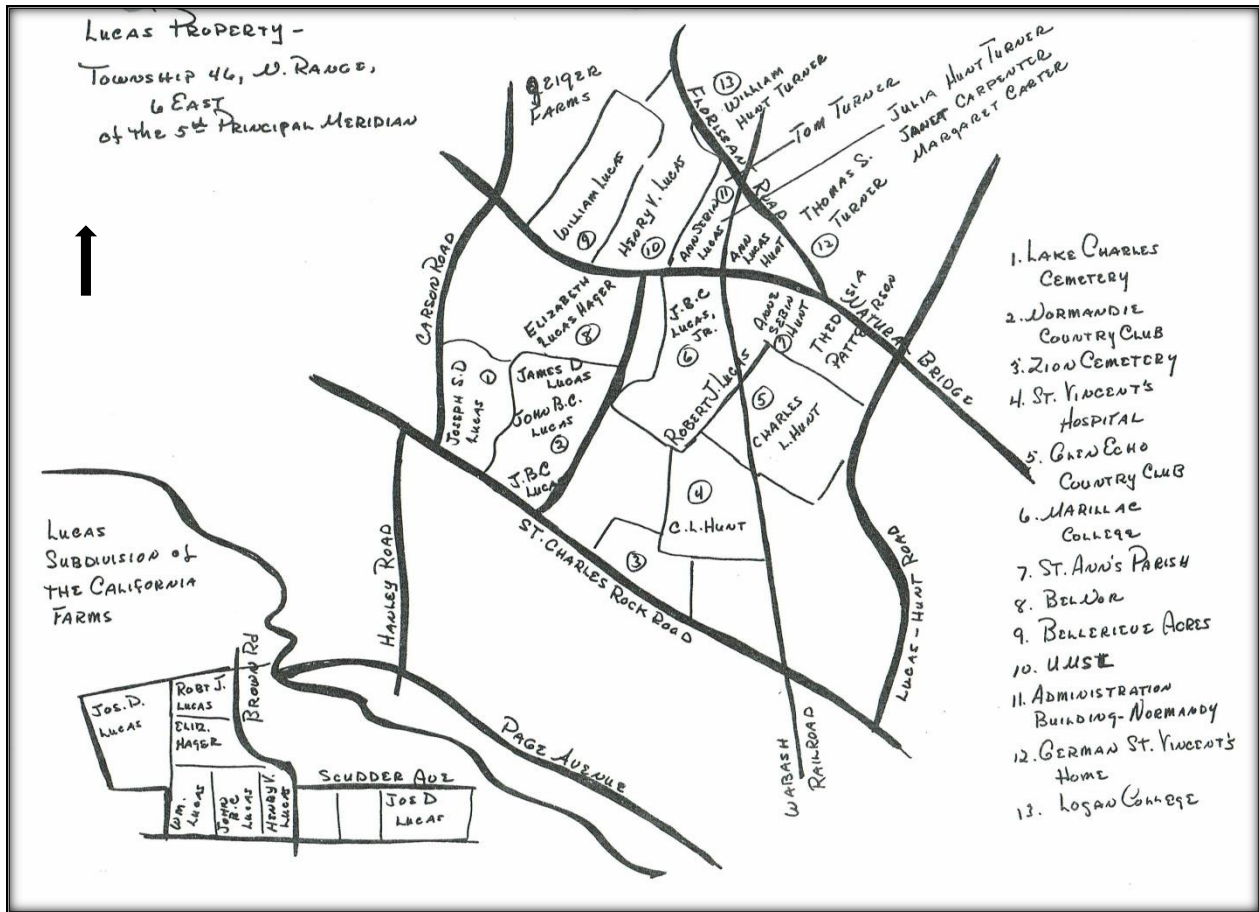 LUCAS PROPERTY -
TOWNSHIP 46, N. RANGE,
6 EAST
of the 5th PRINCIPAL MERIDIAN
GEIGER
FARMS
13
WILLIAM
HUNT TURNER
FLORISSANT ROAD
TOM TURNER
JULIA HUNT TURNER
JANET CARPENTER
MARGARET CARTER
THOMAS S.
TURNER
12
WILLIAM LUCAS
9
HENRY V. LUCAS
10
ANN SEBIN
LUCAS
11
ANN
LUCAS
HUNT
CARSON ROAD
ELIZABETH
LUCAS HAGER
8
J.B.C
LUCAS,
JR.
6
ANNE
SEBIN
HUNT
7
THEDSIA
PATTERSON
NATURAL BRIDGE
JOSEPH S.D
LUCAS
1
JAMES D
LUCAS
JOHN B.C.
LUCAS
2
J.B.C
LUCAS
ROBERT J. LUCAS
5
CHARLES
L. HUNT
4
C.L. HUNT
3
HANLEY ROAD
ST. CHARLES ROCK ROAD
LUCAS - HUNT ROAD
WABASH
RAILROAD
PAGE AVENUE
LUCAS
SUBDIVISION of
THE CALIFORNIA
FARMS
BROWN Rd
JOS. D.
LUCAS
ROBT J.
LUCAS
ELIZ.
HAGER
WM.
LUCAS
JOHN
B.C
LUCAS
HENRY V.
LUCAS
SCUDDER AVE
JOS D
LUCAS
1. LAKE CHARLES
CEMETERY
2. NORMANDIE
COUNTRY CLUB
3. ZION CEMETERY
4. ST. VINCENT'S
HOSPITAL
5. GLEN ECHO
COUNTRY CLUB
6. MARILLAC
COLLEGE
7. ST. ANN'S PARISH
8. BELNOR
9. BELLERIEVE ACRES
10. UMSL
11. ADMINISTRATION
BUILDING - NORMANDY
12. GERMAN ST. VINCENT'S
HOME
13. LOGAN COLLEGE